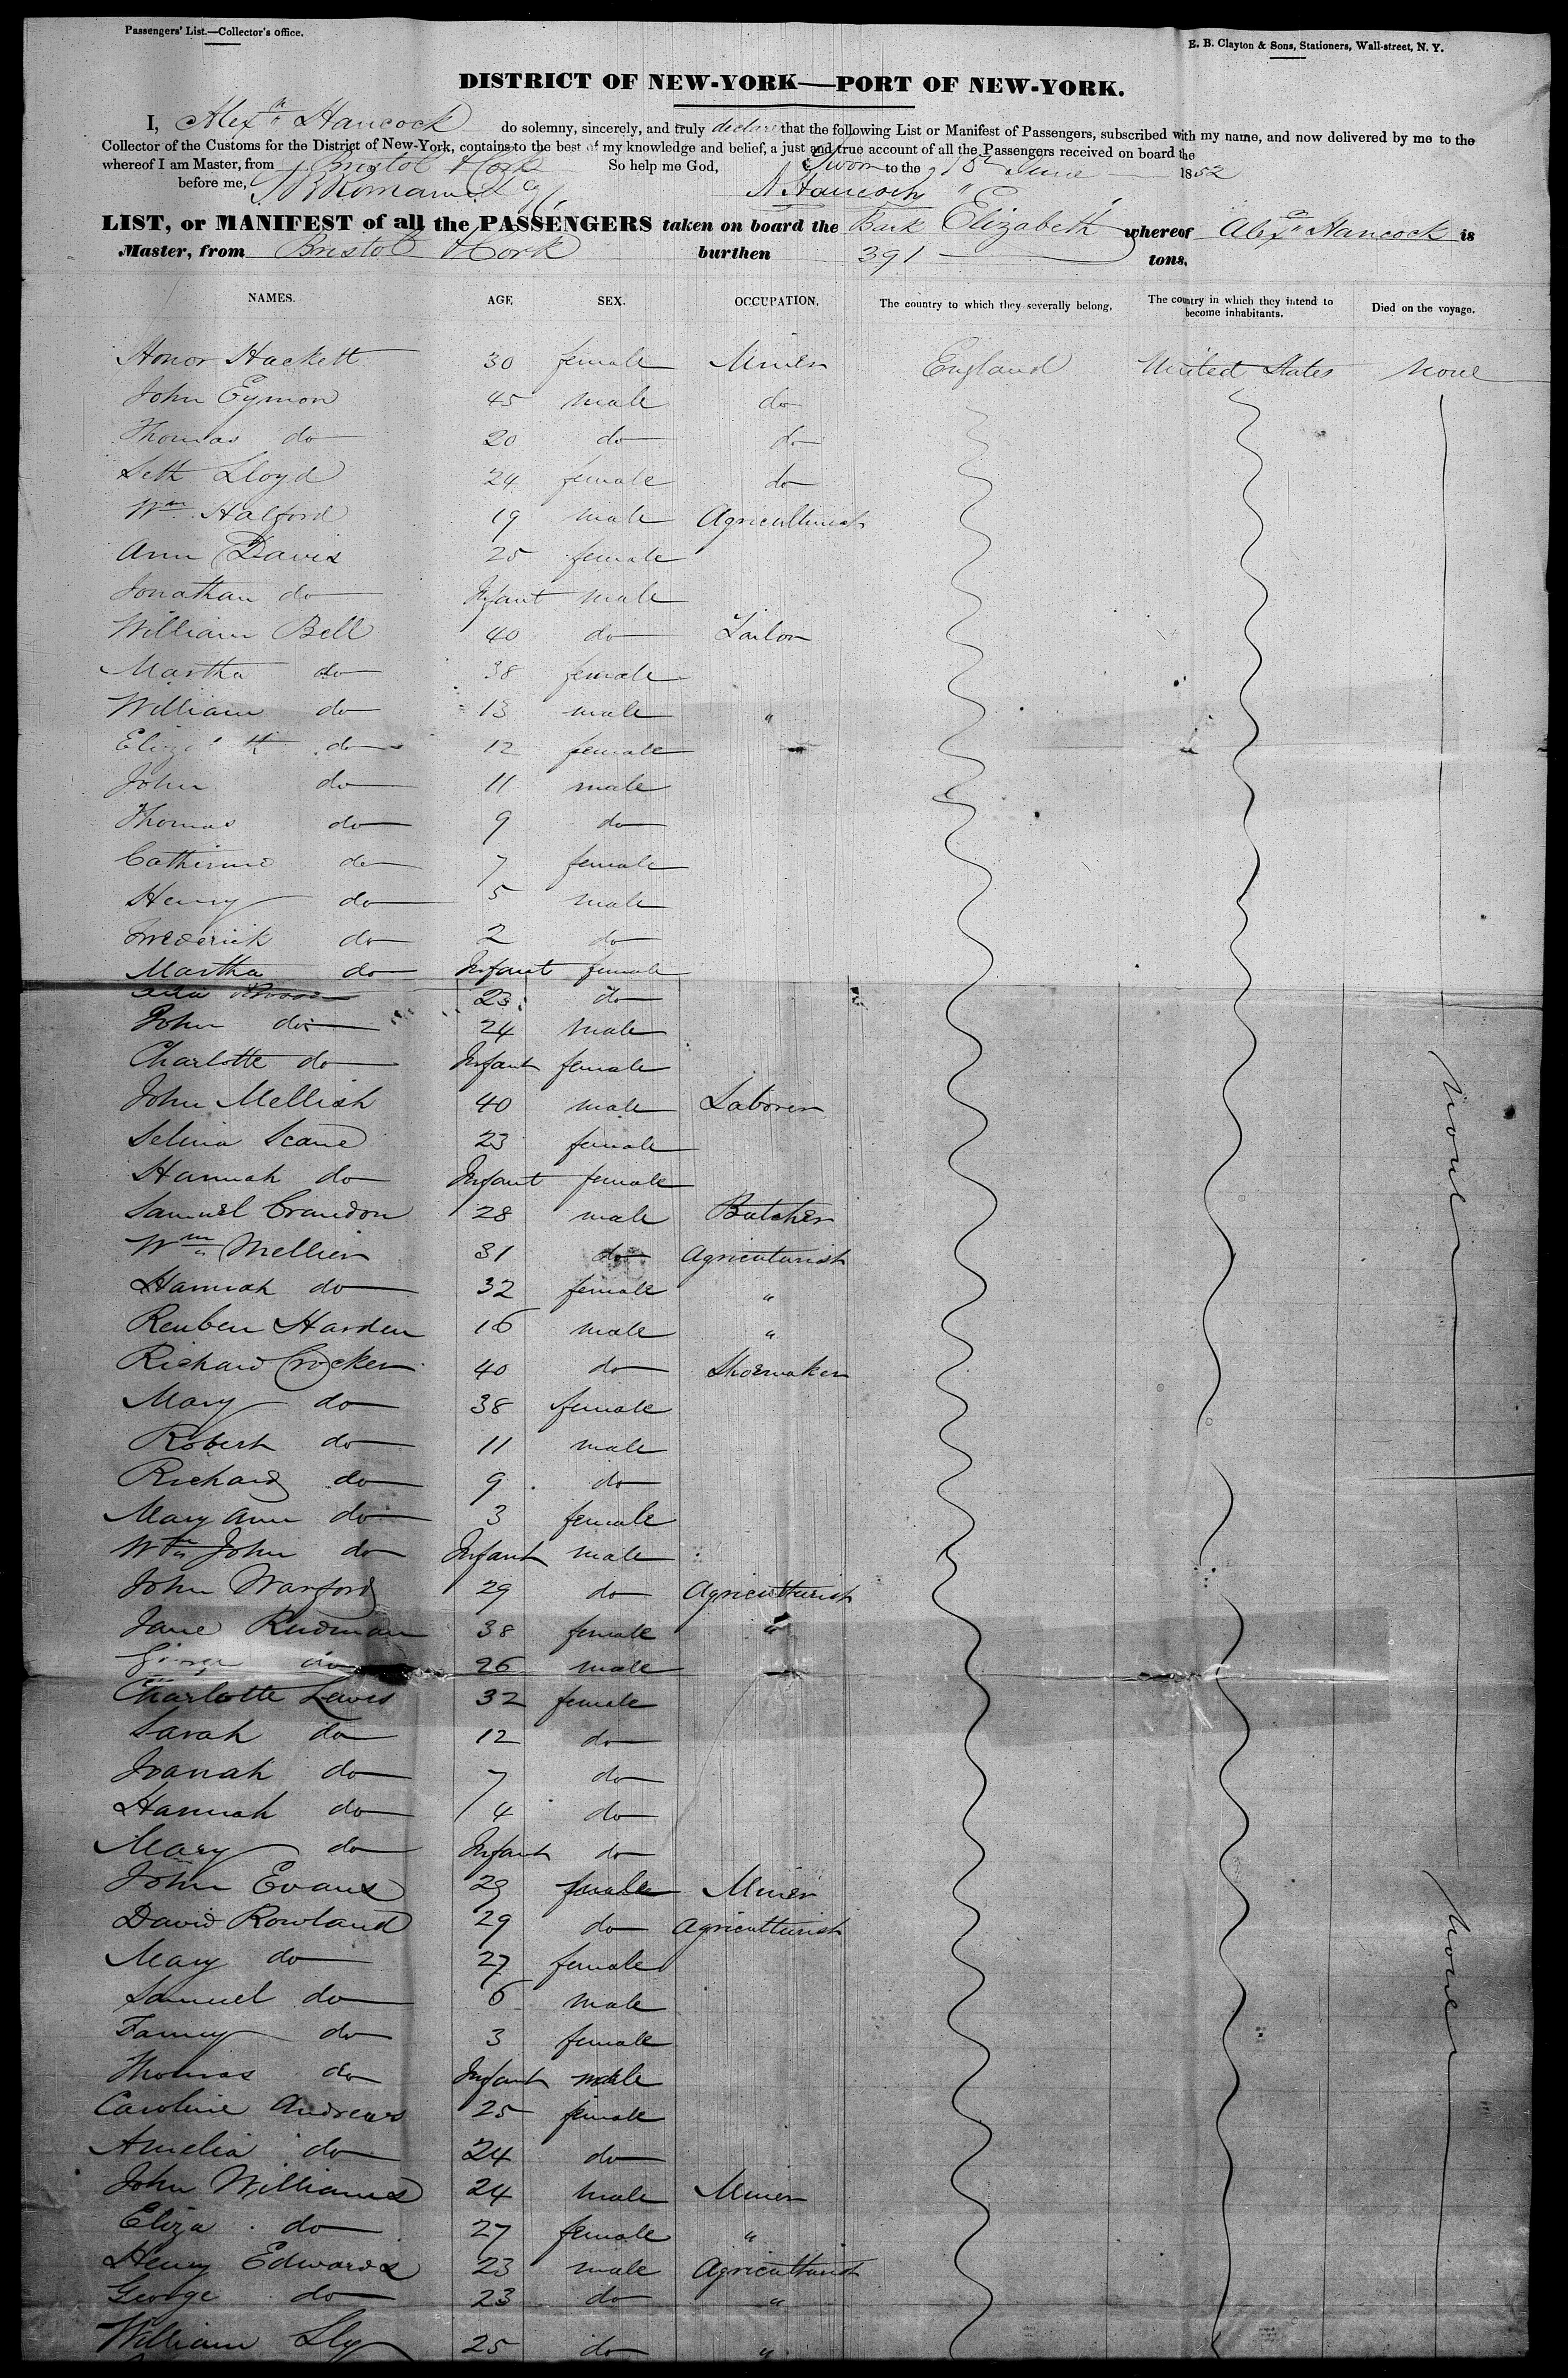 Passengers' List.—Collector's office.
E. B. Clayton & Sons, Stationers, Wall-street, N. Y.
DISTRICT OF NEW-YORK—PORT OF NEW-YORK.
I, Alexr Hancock do solemny, sincerely, and truly declare that the following List or Manifest of Passengers, subscribed with my name, and now delivered by me to the
Collector of the Customs for the District of New-York, contains to the best of my knowledge and belief, a just and true account of all the Passengers received on board the
whereof I am Master, from Bristol & Cork So help me God, Sworn to the 15 June 1852
before me, A Hancock
LIST, or MANIFEST of all the PASSENGERS taken on board the Bark Elizabeth whereof Alexr Hancock is
Master, from Bristol & Cork burthen 391 tons.
NAMES. AGE SEX. OCCUPATION. The country to which they severally belong. The country in which they intend to become inhabitants. Died on the voyage.
Honor Hackett 30 female Miner England United States None
John Eymon 45 male do
Thomas do 20 do do
Seth Lloyd 24 female do
Wm Halford 19 male Agriculturist
Ann Davis 25 female
Jonathan do Infant male
William Bell 40 do Tailor
Martha do 38 female
William do 13 male "
Elizabeth do 12 female
John do 11 male
Thomas do 9 do
Catherine do 7 female
Henry do 5 male
Frederick do 2 do
Martha do Infant female
23 do
John do 24 male
Charlotte do Infant female
John Mellish 40 male Laborer
Selina Scane 23 female
Hannah do Infant female
Samuel Crandon 28 male Butcher
Wm Mellier 31 do Agricuturist
Hannah do 32 female "
Reuben Harden 16 male "
Richard Crocker 40 do Shoemaker
Mary do 38 female
Robert do 11 male
Richard do 9 do
Mary Ann do 3 female
Wm John do Infant male
John Warford 29 do Agriculturist
Jane Rudman 38 female "
George do 26 male
Charlotte Lewis 32 female
Sarah do 12 do
do 7 do
Hannah do 4 do
Mary do Infant do
John Evans 29 female Miner
David Rowland 29 do Agriculturist
Mary do 27 female
Samuel do 6 male
Fanny do 3 female
Thomas do Infant male
Caroline Andrews 25 female
Amelia do 24 do
John Williams 24 male Miner
Eliza do 27 female "
Henry Edwards 23 male Agriculturist
George do 23 do "
William Sly 25 do "
None
None